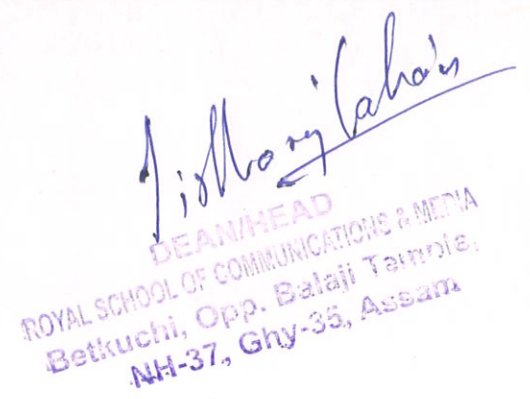 DEAN/HEAD
ROYAL SCHOOL OF COMMUNICATIONS & MEDIA
Betkuchi, Opp. Balaji Temple,
NH-37, Ghy-35, Assam